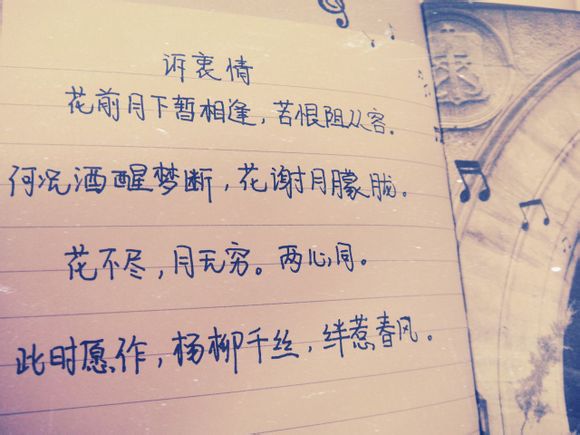 诉衷情
花前月下暂相逢，苦恨阻从容。
何况酒醒梦断，花谢月朦胧。
花不尽，月无穷。两心同。
此时愿作，杨柳千丝，绊惹春风。